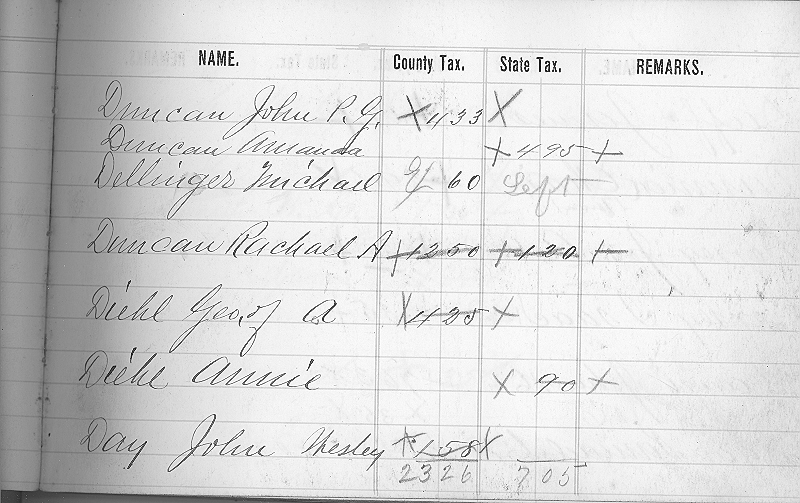 NAME. County Tax. State Tax. REMARKS.
Duncan John P. G. X 4 33 X
Duncan Amanda X 4 95 X
Dellinger Michael 60 Left
Duncan Rachael A X 12 50 X 1 20 X
Diehl Geo. A X 4 25 X
Diehl Annie X 90 X
Day John Wesley X 1 58 X
23 26 7 05